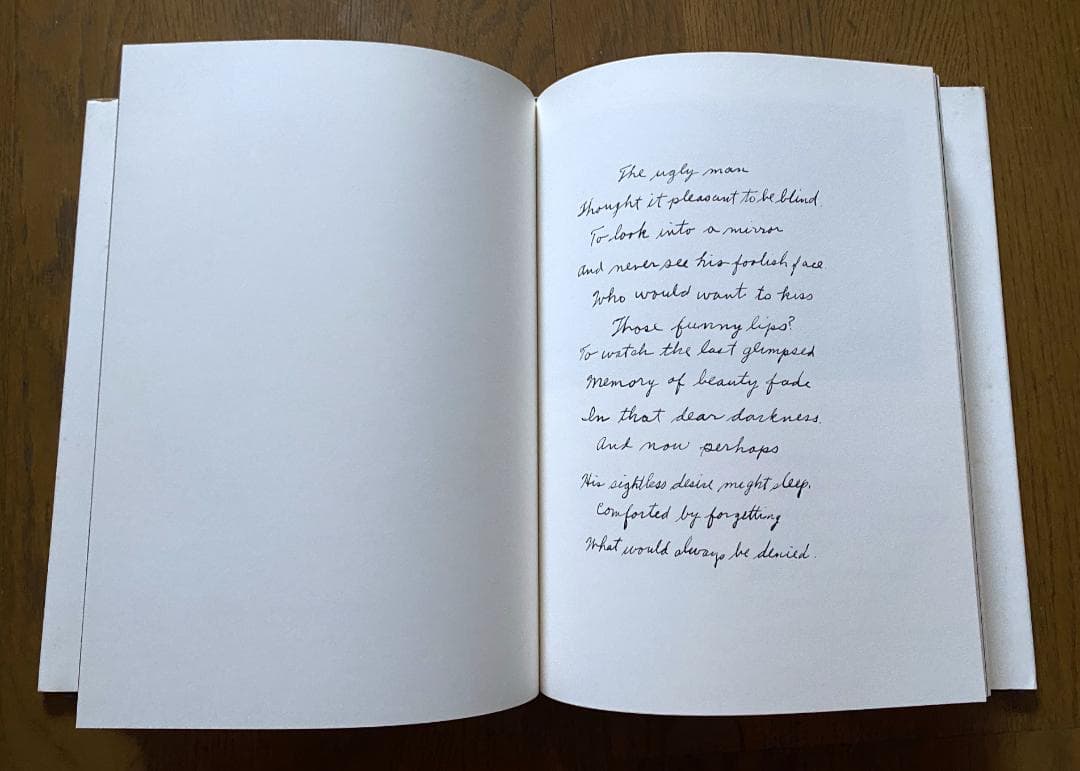 The ugly man
Thought it pleasant to be blind.
To look into a mirror
And never see his foolish face
Who would want to kiss
Those funny lips?
To watch the last glimpsed
Memory of beauty fade
In that dear darkness.
And now perhaps
His sightless desire might sleep.
Comforted by forgetting
What would always be denied.